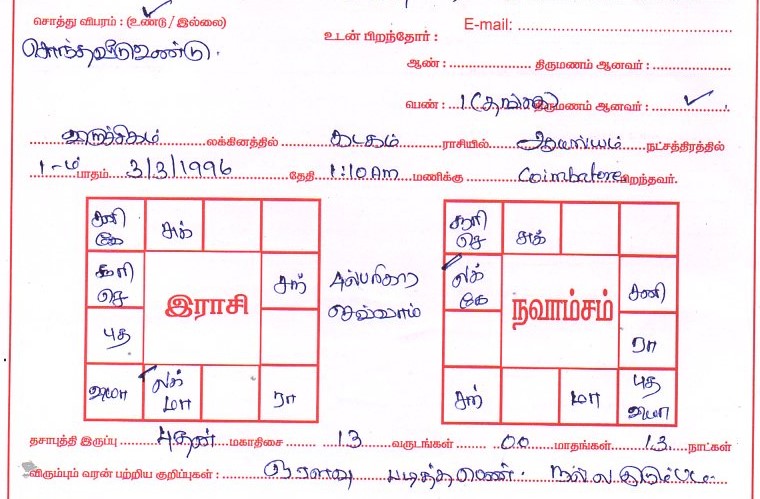 சொத்து விபரம் : (உண்டு / இல்லை)
E-mail:
சொந்தவீடு உண்டு.
உடன் பிறந்தோர் :
ஆண் : திருமணம் ஆனவர் :
பெண் : 1 (தங்கை) திருமணம் ஆனவர் :
விருச்சிகம் லக்கினத்தில் கடகம் ராசியில் ஆயில்யம் நட்சத்திரத்தில்
1-ம் பாதம் 3/3/1996 தேதி 1:10 AM மணிக்கு Coimbatore பிறந்தவர்.
சனி சுக் சூரி சுக்
கே செ
சூரி சந் பரிகார லக் சனி
செ செவ்வாய் கே
இராசி நவாம்சம்
புத ரா
குரு லக் ரா சந் மா புத
மா குரு
தசாபுத்தி இருப்பு புதன் மகாதிசை 13 வருடங்கள் 00 மாதங்கள் 13 நாட்கள்
விரும்பும் வரன் பற்றிய குறிப்புகள் : ஓரளவு படித்த பெண். நல்ல குடும்பம்.